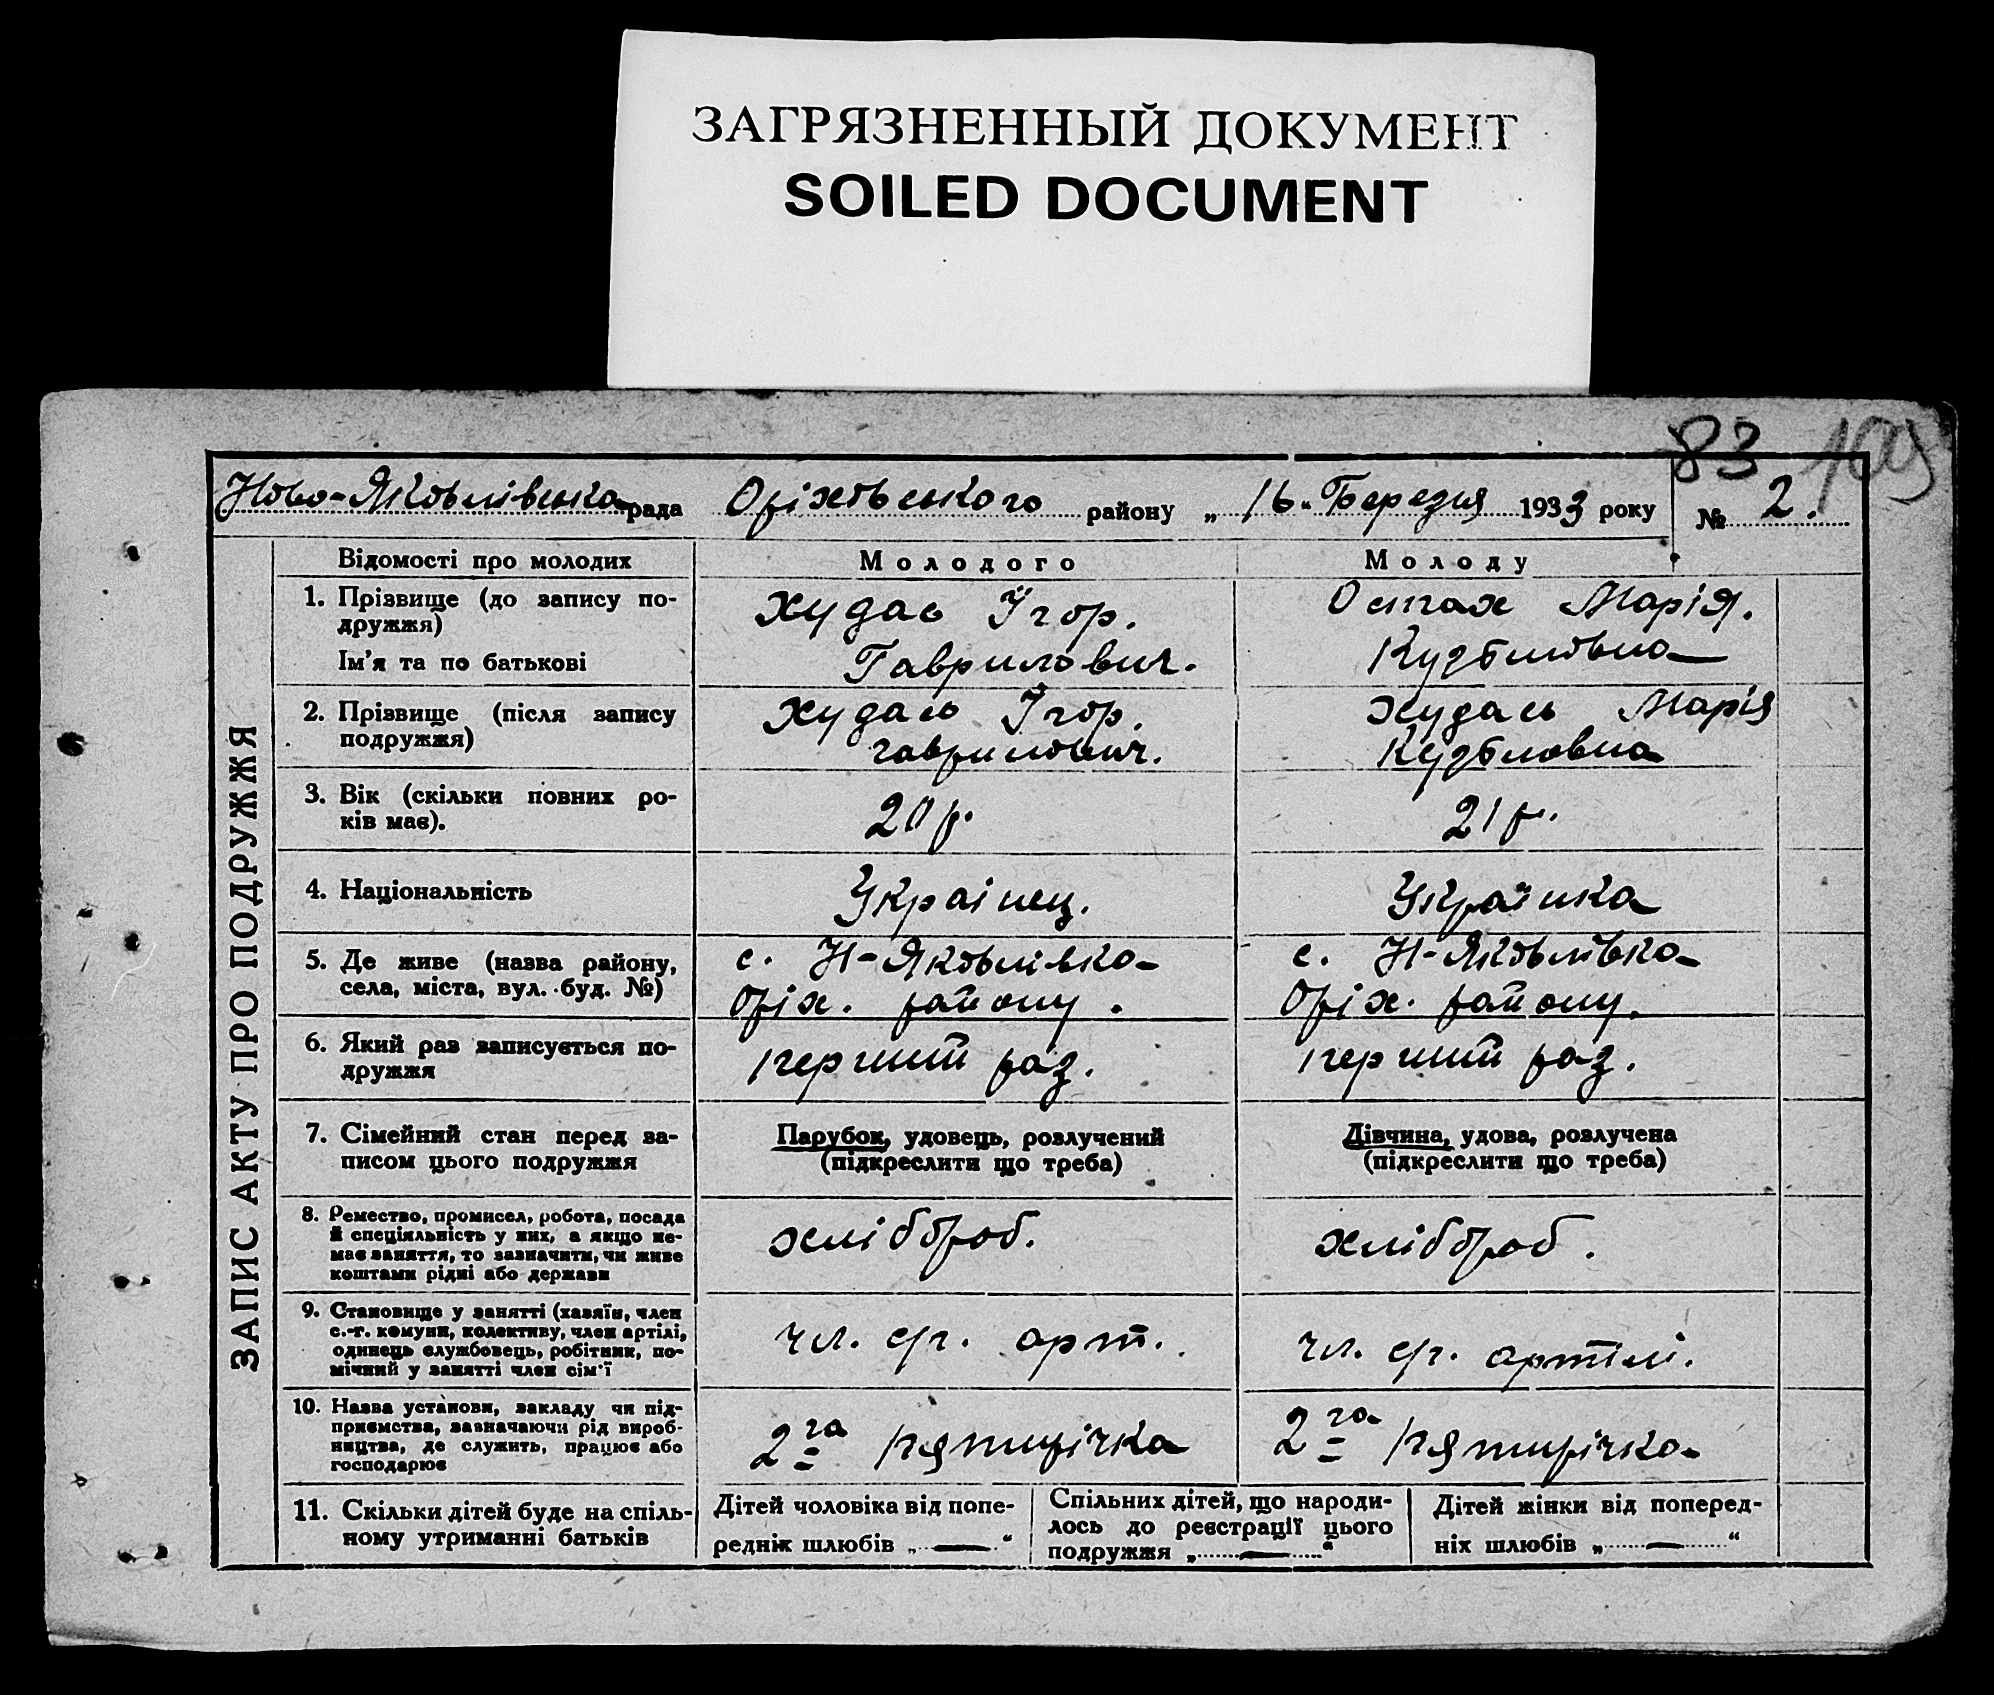 ЗАГРЯЗНЕННЫЙ ДОКУМЕНТ
SOILED DOCUMENT
83 109
Ново-Яковлівська рада Оріховського району „ 16 " Березня 1933 року № 2.
ЗАПИС АКТУ ПРО ПОДРУЖЖЯ
Відомості про молодих
Молодого
Молоду
1. Прізвище (до запису по-
дружжя)
Ім'я та по батькові
Худась Ігор.
Гаврилович.
Остгах Марія.
2. Прізвище (після запису
подружжя)
Худась Ігор.
гаврилович.
Худась Марія
3. Вік (скільки повних ро-
ків має).
20 р.
21 р.
4. Національність
Українец.
Українка
5. Де живе (назва району,
села, міста, вул. буд. №)
с. Н-Яковлівка
Оріх. району.
с. Н-Яковлівка
Оріх. району.
6. Який раз записується по-
дружжя
перший раз.
перший раз.
7. Сімейний стан перед за-
писом цього подружжя
Парубок, удовець, розлучений
(підкреслити що треба)
Дівчина, удова, розлучена
(підкреслити що треба)
8. Ремество, промисел, робота, посада
й спеціяльність у них, а якщо не-
має заняття, то зазначити, чи живе
коштами рідні або держави
хлібороб.
хлібороб.
9. Становище у занятті (хазяїн, член
с.-г. комуни, колективу, член артілі,
одинець службовець, робітник, по-
мічний у занятті член сім'ї
чл. ср. арт.
чл. ср. артілі.
10. Назва установи, закладу чи під-
приємства, зазначаючи рід вироб-
ництва, де служить, працює або
господарює
2га пятирічка
2га пятирічка
11. Скільки дітей буде на спіль-
ному утриманні батьків
Дітей чоловіка від попе-
редніх шлюбів „ — "
Спільних дітей, що народи-
лось до реєстрації цього
подружжя „ — "
Дітей жінки від поперед-
ніх шлюбів „ — "